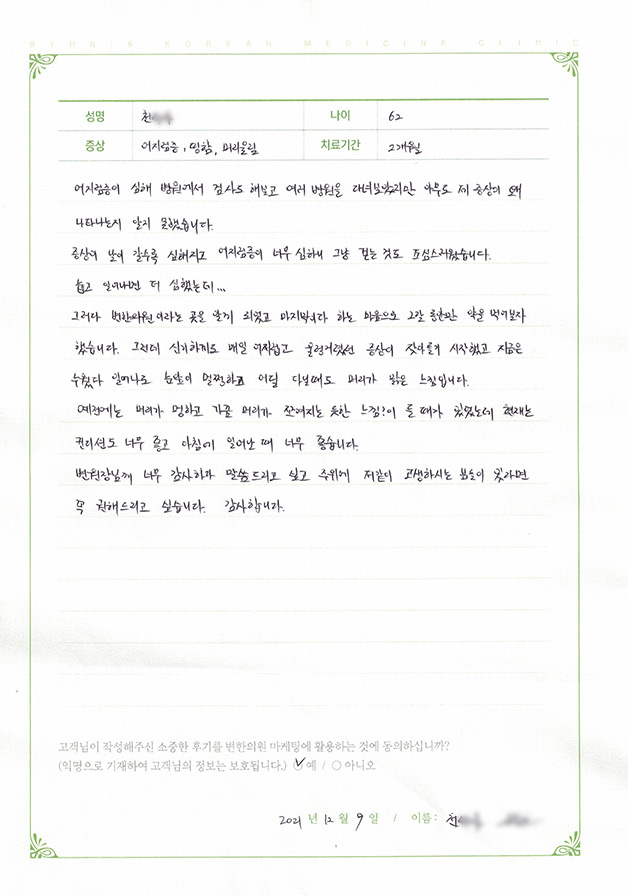 BYUN'S KOREAN MEDICINE CLINIC
성명 천 나이 62
증상 어지럼증, 멍함, 머리울림 치료기간 2개월
어지럼증이 심해 병원에서 검사도 해보고 여러 병원을 다녀보았지만 아무도 제 증상이 왜
나타나는지 알지 못했습니다.
증상이 날이 갈수록 심해지고 어지럼증이 너무 심하니 그냥 걷는 것도 조심스러웠습니다.
눕고 일어나면 더 심했는데...
그러다 변한의원이라는 곳을 알게 되었고 마지막이다 하는 마음으로 2달 동안만 약을 먹어보자
했습니다. 그런데 신기하게도 매일 어지럽고 울렁거렸던 증상이 잦아들기 시작했고 지금은
누웠다 일어나도 눈앞이 멀쩡하고 어딜 다닐때도 머리가 맑은 느낌입니다.
예전에는 머리가 멍하고 가끔 머리가 쪼여지는 듯한 느낌?이 들 때가 있었는데 현재는
컨디션도 너무 좋고 아침에 일어날 때 너무 좋습니다.
변원장님께 너무 감사하다 말씀드리고 싶고 주위에 저같이 고생하시는 분들이 있다면
꼭 권해드리고 싶습니다. 감사합니다.
고객님이 작성해주신 소중한 후기를 변한의원 마케팅에 활용하는 것에 동의하십니까?
(익명으로 기재하여 고객님의 정보는 보호됩니다.) ✓예 / ○아니오
2021 년 12 월 9 일 / 이름 : 천